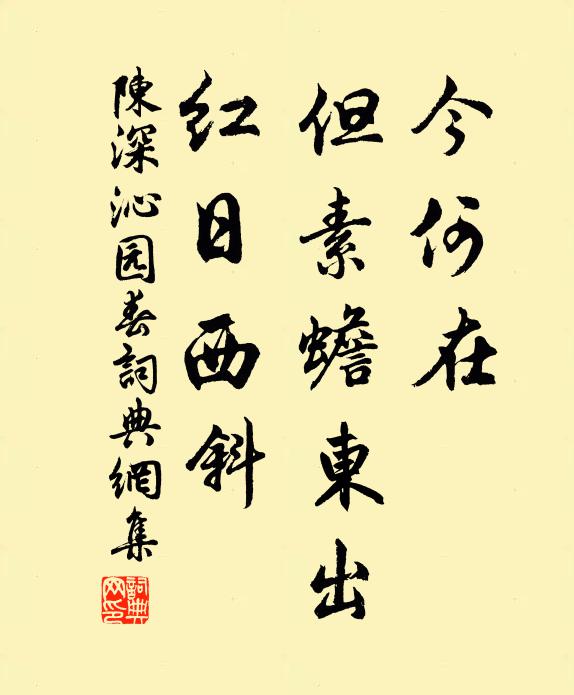 今何在
但素蟾東出
红日西斜
陳深沁园春詞典網集
詞典网印